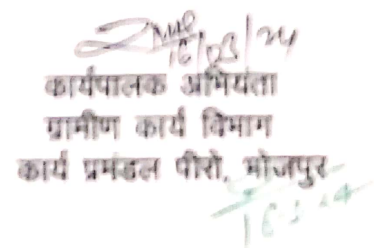 16/03/24
कार्यपालक अभियंता
ग्रामीण कार्य विभाग
कार्य प्रमंडल पीरो, भोजपुर